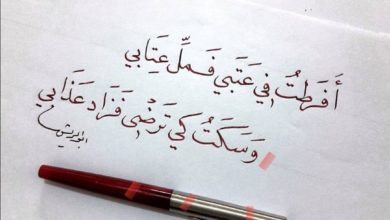 أَفرَطتُ في عَتَبي فَملَّ عِتابي
وَسَكَتُ كي تَرضْى فَزَاد عَذَابي